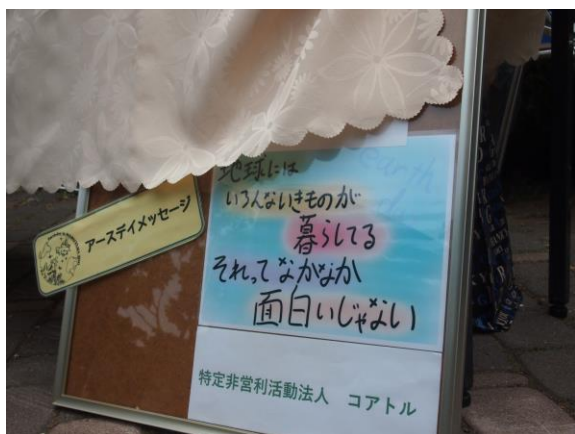 アースデイメッセージ
earth
地球には
いろんないきものが
暮らしてる
それってなかなか
面白いじゃない
特定非営利活動法人 コアトル